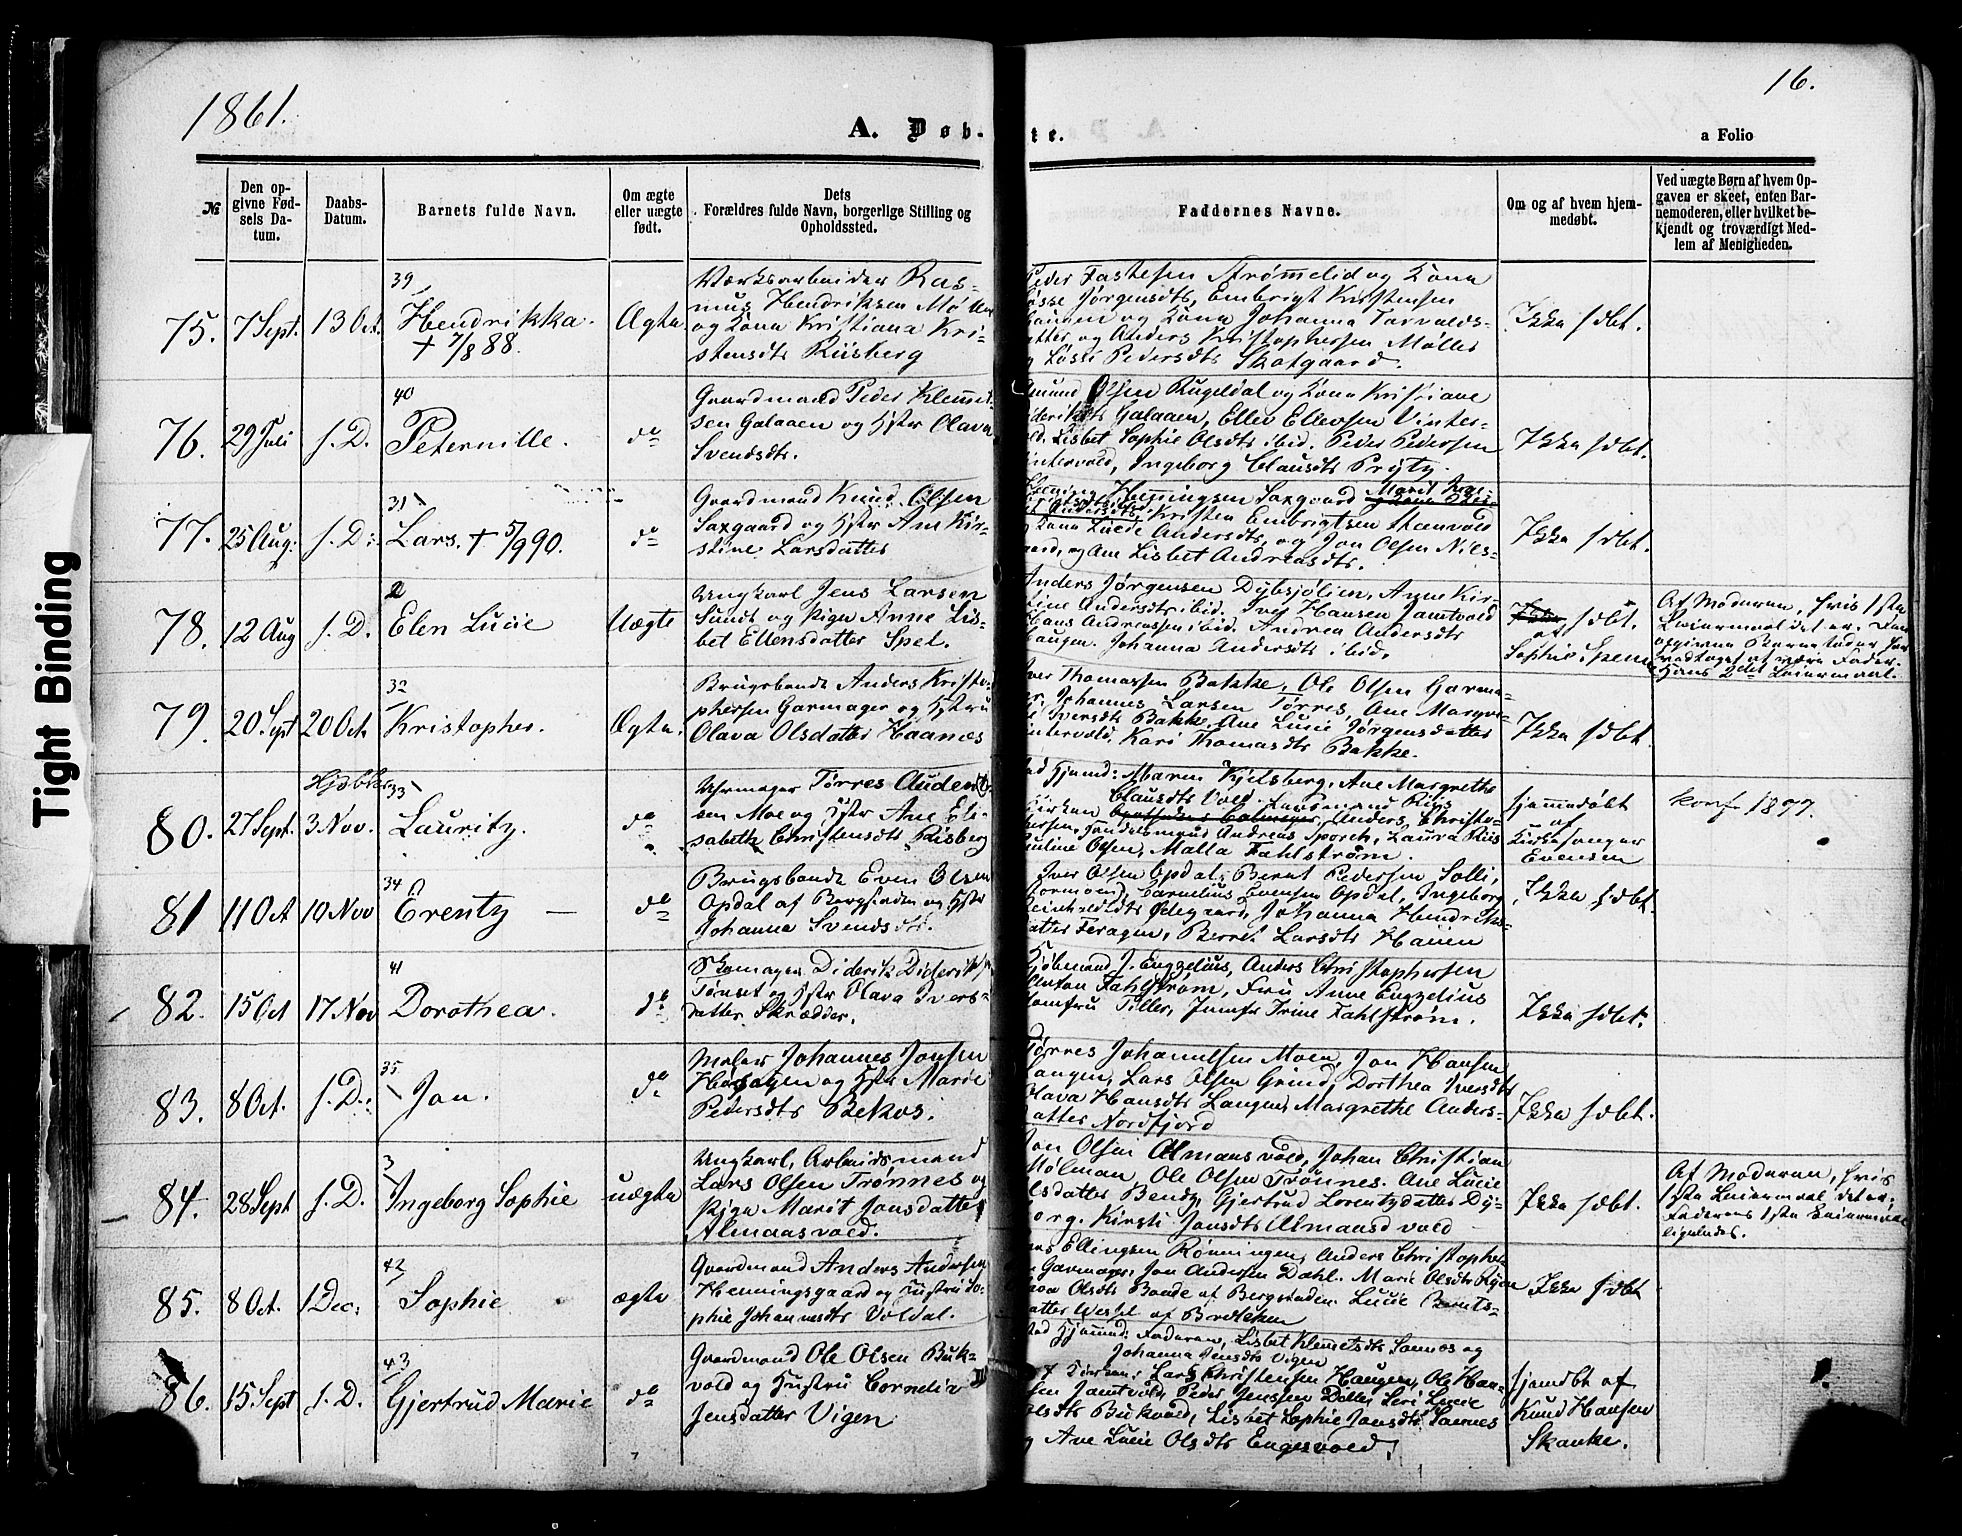 1861.
16.
A. Døb-
te.
a Folio
№
Den op-
givne Fød-
sels Da-
tum.
Daabs-
Datum.
Barnets fulde Navn.
Om ægte
eller uægte
født.
Dets
Forældres fulde Navn, borgerlige Stilling og
Opholdssted.
Faddernes Navne.
Om og af hvem hjem-
medøbt.
Ved uægte Børn af hvem Op-
gaven er skeet, enten Bar-
nemoderen, eller hvilket be-
kjendt og troværdigt Med-
lem af Menigheden.
75. 7 Sept. 13 Oct.
39
Hendrikka.
+ 7/8 88.
Ægte
Værksarbeider Ras-
mus Hendriksen
og Kona Kristiana Kri-
stensdtr Riisberg
Peder Fastesen Strømelid og Kona
Lisse Jørgensdtr, Embrigt Kristensen
og Kona Johanna Torvalds-
datter, og Anders Kristophersen Møller
Pedersdtr Skotgaard.
Ikke hdbt.
76. 29 Juli s. D.
40
Peternille.
do
Gaardmand Peder Klemmet-
sen Galaaen og Hstr Olava
Svendsdtr.
Amund Olsen Rugeldal og Kona Kristiane
Dideriksdtr Galaaen, Ellev Ellevsen Vinter-
vold, Lisbet Sophie Olsdtr ibid. Peder Pedersen
Vintervold, Ingeborg Clausdtr Prytz.
Ikke hdbt.
77. 25 Aug. s. D.
31
Lars. + 5/9 90.
do
Gaardmand Knud Olsen
Saxgaard og Hstr Ane Kir-
stine Larsdatter
Henning Henningsen Saxgaard
Kristen Embrigtsen Steenvold
og Kona Lucie Andersdtr, og Jon Olsen Niels-
gaard, og Ane Lisbet Andreasdtr.
Ikke hdbt.
78. 12 Aug s. D.
2
Elen Lucie
Uægte
Ungkarl Jens Larsen
Sundt og Pige Anne Lis-
bet Ellensdatter Spel.
Anders Jørgensen Dybsjølien, Anne Kir-
stine Andersdtr ibid. Iver Hansen Jamtvold
Hans Andreassen ibid. Andrea Andersdtr
Haugen. Johanna Andersdtr ibid.
Ikke hdbt.
af
Sophie
Af Moderen, hvis 1ste
Leiermaal det er. Den
opgivne Barnefader har
vedtaget at være Fader.
Hans 2det Leiermaal.
79. 20 Sept 20 Oct.
32
Kristopher.
Ægte.
Brugsbonde Anders Kristo-
phersen Garmager og Hustru
Olava Olsdatter Haanæs
Iver Thomassen Bakke, Ole Olsen Garma-
ger, Johannes Larsen Tørres, Ane Margre-
te Iversdtr Bakke, Ane Lucie Jørgensdatter
Vintervold, Kari Thomasdtr Bakke.
Ikke hdbt.
80. 27 Sept. 3 Nov.
33
Lauritz.
do
Uhrmager Tørres Auden-
sen Moe og Hstr Ane Eli-
sabeth Christensdtr Riisberg
Ved Hjemd: Maren Kjelsberg, Ane Margrethe
Clausdtr Vold.
Kirken Anders Christo-
phersen, Handelsmand Andreas Sporch, Laura Riis
Pauline Olsen, Malla Fahlstrøm.
hjemmedøbt
af
Kirkesanger
Evensen
konf 1877.
81 11 Oct 10 Nov
34
Erentz —
do
Brugsbonde Even Olsen
Opdal af Bergstaden og Hstr
Johanna Svendsdtr.
Iver Olsen Opdal, Bernt Pedersen Solli,
Cornelius Evensen Opdal, Ingeborg
Reinholdsdtr Ødegaard, Johanna Hendriks-
datter Feragen, Berret Larsdtr Hauen
Ikke hdbt.
82. 15 Oct 17 Nov
41
Dorothea.
do
Skomager Diderik Diderikss:
Tønset og Hstr Olava Ivers-
datter Skrædder.
Kjøbmand J. Engzelius, Anders Christophersen
Anton Fahlstrøm, Fru Anne Engzelius
Jomfru Tiller, Jomfr Trine Fahlstrøm.
Ikke hdbt.
83. 8 Oct. s. D.
35
Jon.
do
Maler Johannes Jonsen
og Hstr Marie
Pedersdtr Bekos.
Tørres Johannessen Moen, Jon Hansen
Langen, Lars Olsen Grind, Dorthea Iversdtr
Olava Hansdtr Langen, Margrethe Anders-
datter Nordfjord
Ikke hdbt.
84. 28 Sept s. D.
3
Ingeborg Sophie
uægte
Ungkarl, Arbeidsmand
Lars Olsen Trønnes og
Pige Marit Jonsdatter
Almaasvold.
Jon Olsen Almaasvold, Johan Christian
Holman, Ole Olsen Trønnes. Ane Lucie
Olsdatter Bendz, Gjertrud Lorentzdatter Dy-
borg. Kirsti Jonsdtr Almaasvold
Ikke hdbt.
Af Moderen, hvis
1ste Leiermaal det er.
Faderens 1ste Leiermaal
ligeledes.
85. 8 Oct. 1 Dec:
42
Sophie
ægte
Gaardmand Anders Andersen
Henningsgaard og Hustru So-
phie Johannesdtr Voldal.
Ellingsen Rønningen, Anders Christophers:
Garmager, Jon Andersen Dahl. Marie Olsdtr
Olava Olsdtr Bonde af Bergstaden. Lucie Bernts-
datter Wessel af Bredleken
Ikke hdbt
86. 15 Sept s. D.
43
Gjertrud Marie
do
Gaardmand Ole Olsen Buk-
vold og Hustru Cornelia
Jensdatter Vigen
Ved Hjemmd: Faderen, Lisbet Klemetsdtr Sannes og
Johanna Jensdtr Vigen
I Kirken: Lars Christensen Haugen, Ole Han-
sen Jamtvold, Peder Jenssen Dalli, Siri Lucie
Olsdtr Bukvold, Lisbet Sophie Jonsdtr Sannes
og Ane Lucie Olsdtr Engesvold.
hjemdbt af
Knud Hansen
Skanke.
Tight Binding